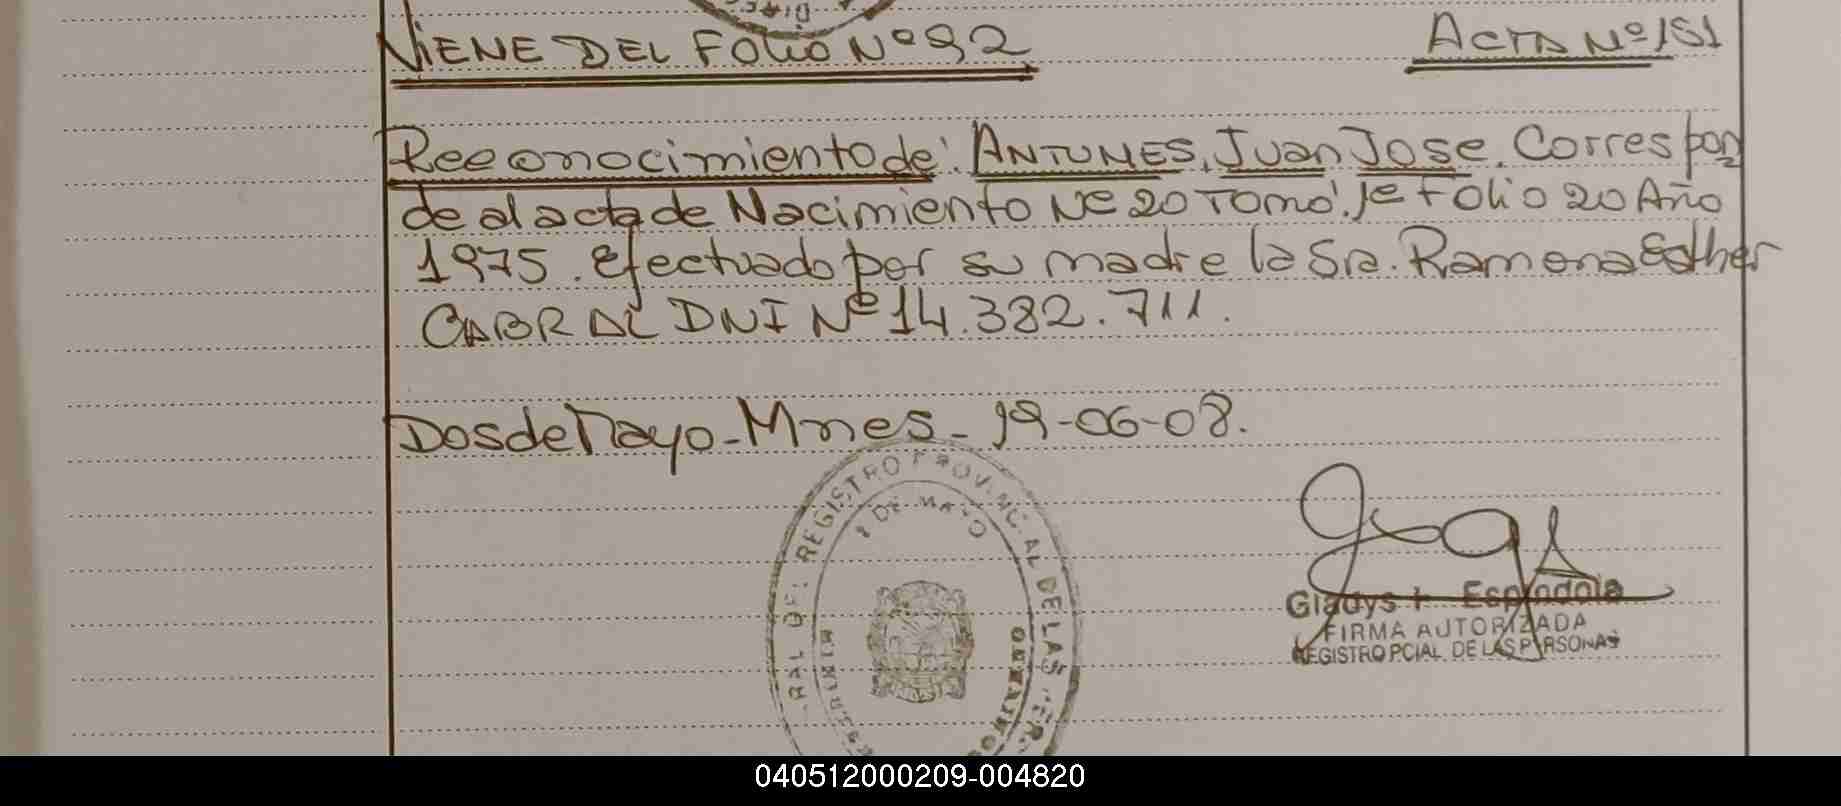 VIENE DEL FOLIO Nº 92
ACTA Nº 151
Reconocimiento de: ANTUNES, Juan Jose. Correspon
de al acta de Nacimiento Nº 20 Tomo: 1º Folio 20 Año
1975. efectuado por su madre la Sra. Ramona Esther
CABRAL DNI Nº 14.382.711.
Dos de Mayo - Mnes - 19-06-08.
REGISTRO PROVINCIAL DE LAS PER
2 DE MAYO
MISIONES
Gladys I. Espindola
FIRMA AUTORIZADA
REGISTRO PCIAL DE LAS PERSONAS
040512000209-004820